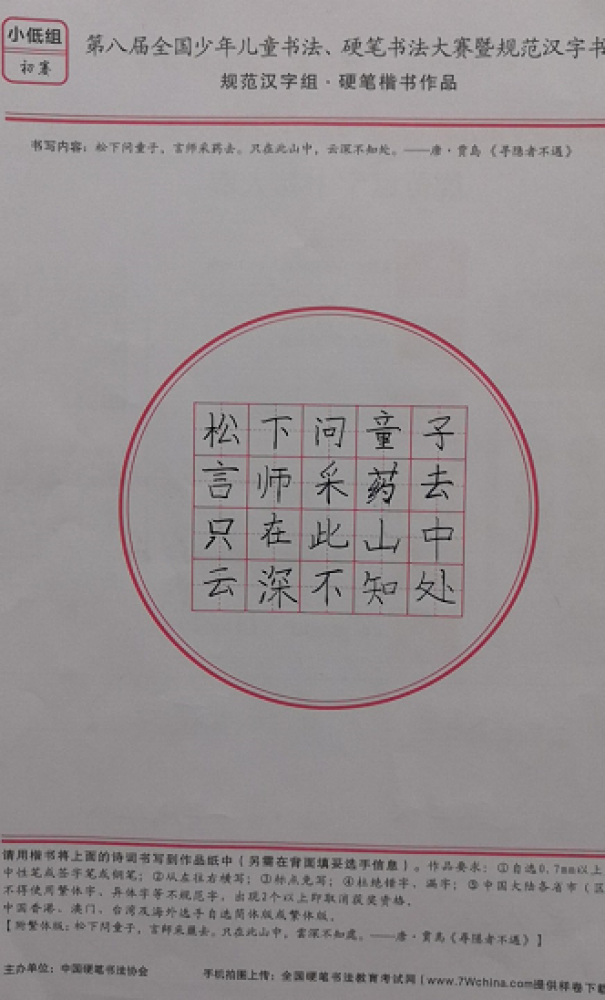 小低组
初赛
第八届全国少年儿童书法、硬笔书法大赛暨规范汉字书
规范汉字组·硬笔楷书作品
书写内容：松下问童子，言师采药去。只在此山中，云深不知处。——唐·贾岛《寻隐者不遇》
松下问童子
言师采药去
只在此山中
云深不知处
请用楷书将上面的诗词书写到作品纸中（另需在背面填妥选手信息）。作品要求：①自选0.7mm以上
中性笔或签字笔或钢笔；②从左往右横写；③标点免写；④杜绝错字、漏字；⑤中国大陆各省市（区
不得使用繁体字、异体字等不规范字，出现2个以上即取消获奖资格，
中国香港、澳门、台湾及海外选手自选简体版或繁体版。
【附繁体版：松下問童子，言師采藥去。只在此山中，雲深不知處。——唐·贾岛《寻隐者不遇》】
主办单位：中国硬笔书法协会 手机拍图上传：全国硬笔书法教育考试网（www.7Wchina.com提供样卷下载